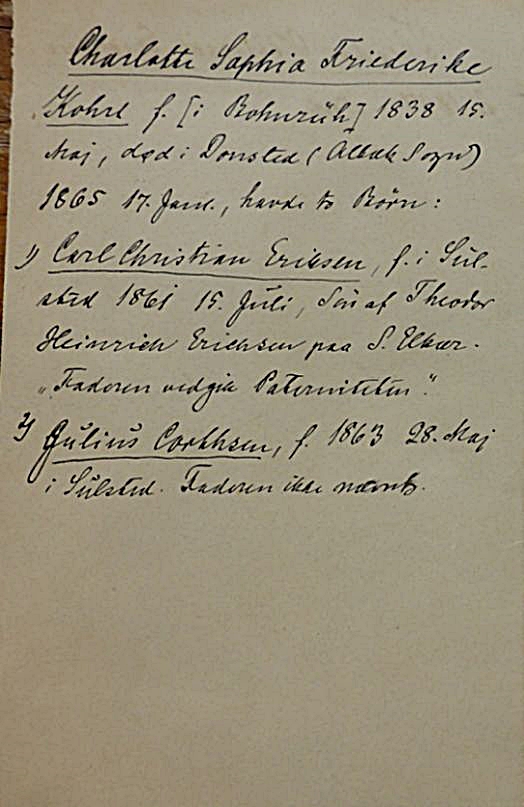 Charlotte Sophia Friederike
Kohrt f. [i Bohnrüh] 1838 15.
Maj, død i Donsted (Albæk Sogn)
1865 17. Jan., havde to Børn:
1) Carl Christian Eriksen, f. i Sül-
sted 1861 15. Jüli, Sön af Theodor
Heinrich Erichsen paa S. Elkær.
"Faderen vedgik Paterniteten."
2) Jülius Corthsen, f. 1863 28. Maj
i Sülsted. Faderen ikke nævnt.